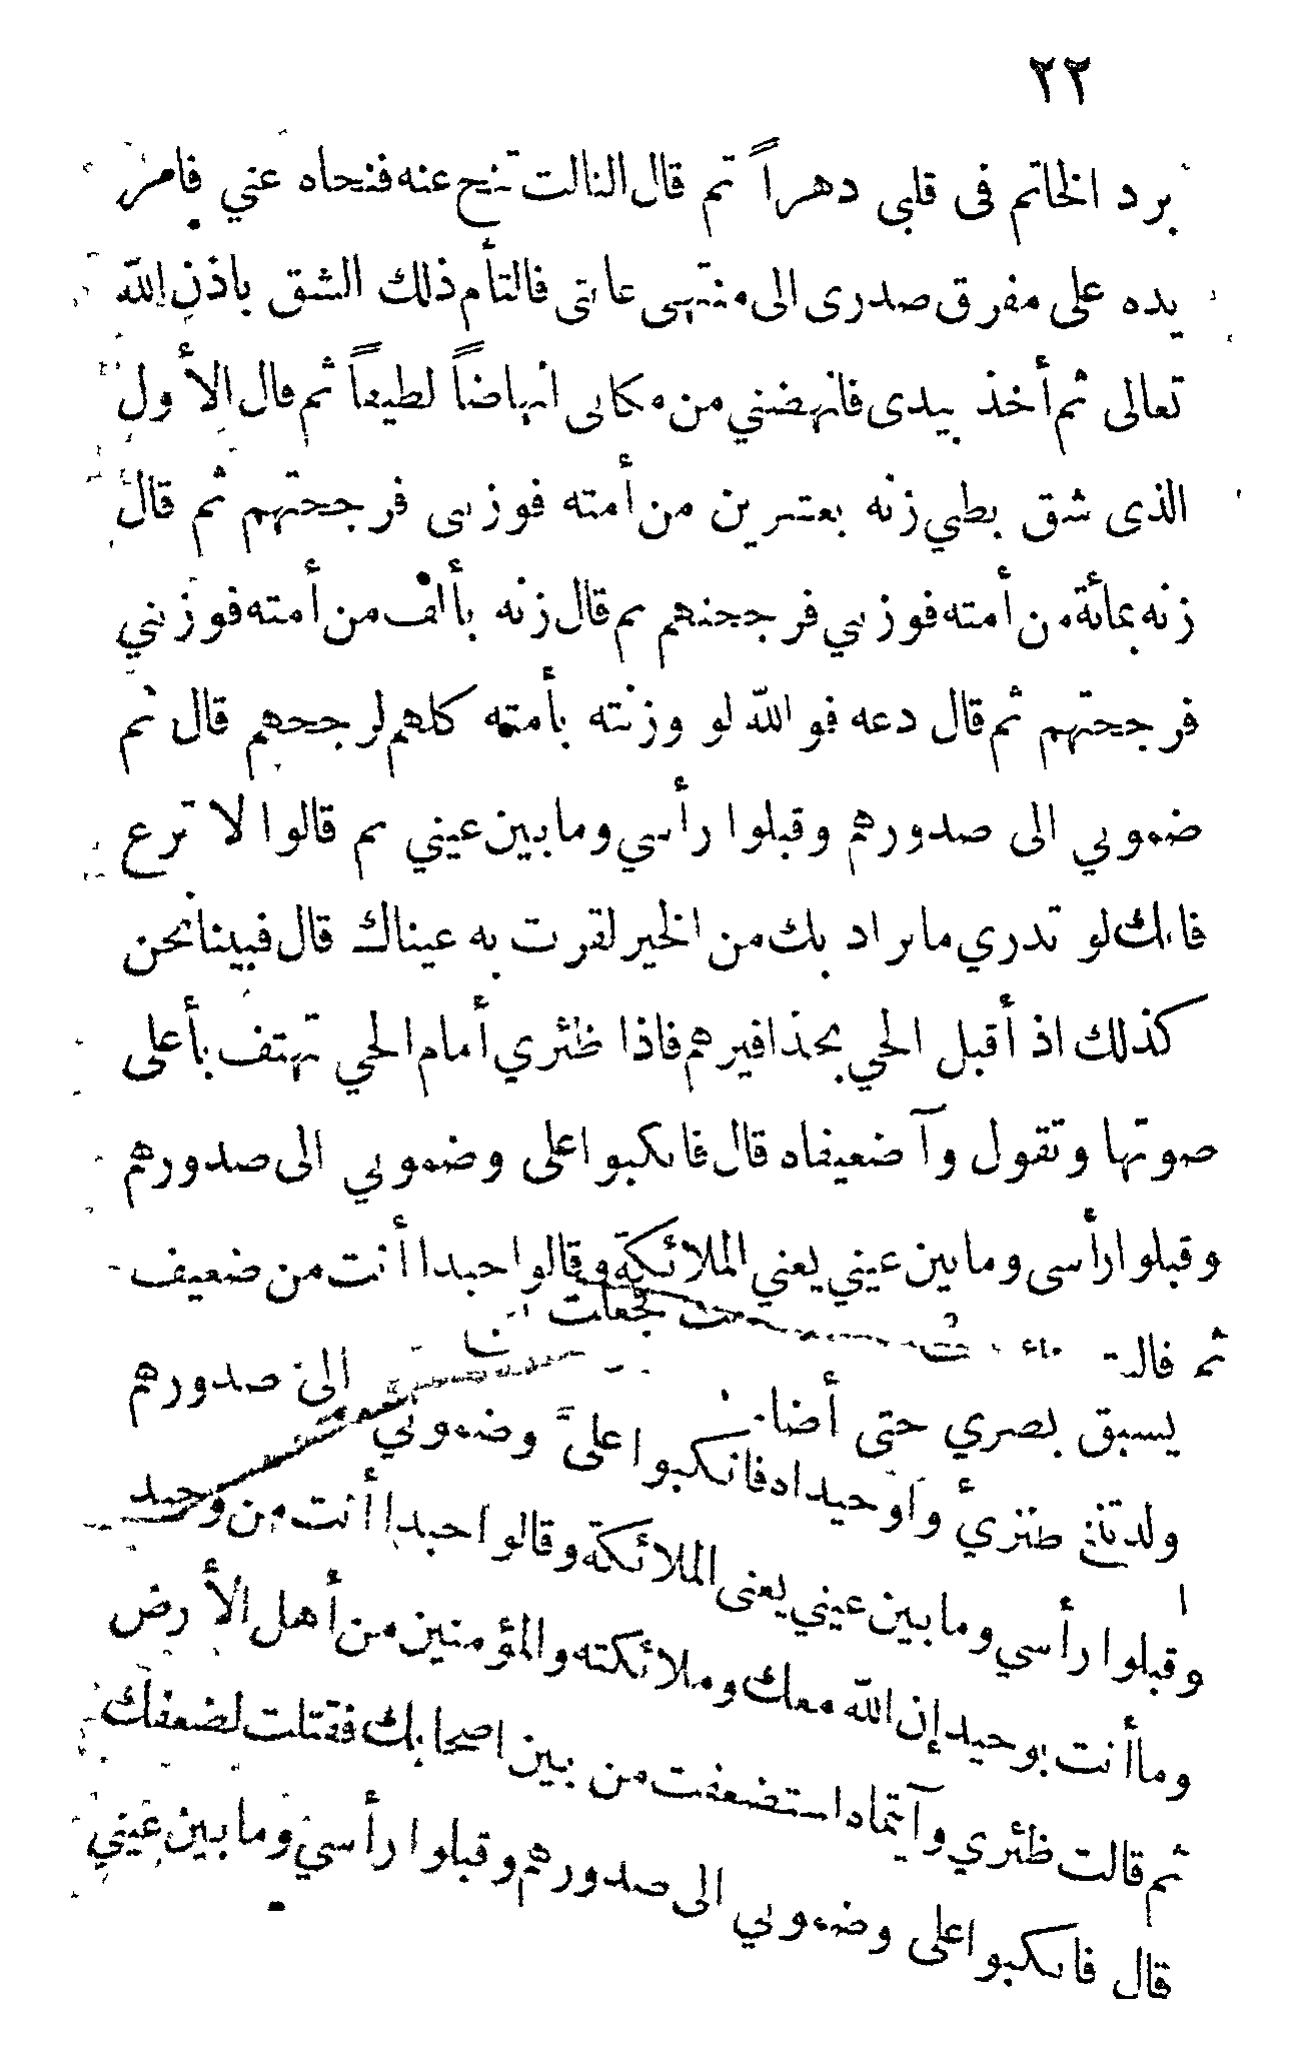 ٢٢
برد الخاتم فى قلبى دهراً ثم قال الثالث تنح عنه فنحاه عني فامر
يده على مفرق صدرى الى منتهى عانتى فالتأم ذلك الشق باذن الله
تعالى ثم أخذ بيدى فانهضني من مكانى انهاضاً لطيفاً ثم قال الأول
الذى شق بطني زنه بعشرين من أمته فوزنى فرجحتهم ثم قال
زنه بمائة من أمته فوزنى فرجحتهم ثم قال زنه بألف من أمته فوزنني
فرجحتهم ثم قال دعه فوالله لو وزنته بأمته كلهم لرجحهم قال ثم
ضموني الى صدورهم وقبلوا رأسي وما بين عيني ثم قالوا لا ترع
فانك لو تدري ما يراد بك من الخير لقرت به عيناك قال فبينا نحن
كذلك اذ أقبل الحي بحذافيرهم فاذا ظئري أمام الحي تهتف بأعلى
صوتها وتقول وآ ضعيفاه قال فانكبوا على وضموني الى صدورهم
وقبلوا رأسى وما بين عيني يعني الملائكة وقالوا حبدا أنت من ضعيف
ثم قالت
يسبق بصري حتى أضا الى صدورهم
ولدتني ظئري وآوحيداه فانكبوا على وضموني
وقبلوا رأسي وما بين عيني يعنى الملائكة وقالوا حبدا أنت من وحيد
وما أنت بوحيد إن الله معك وملائكته والمؤمنين من أهل الأرض
ثم قالت ظئري وآيتماه استضعفت من بين اصحابك فقتلت لضعفك
قال فانكبوا على وضموني الى صدورهم وقبلوا رأسي وما بين عيني